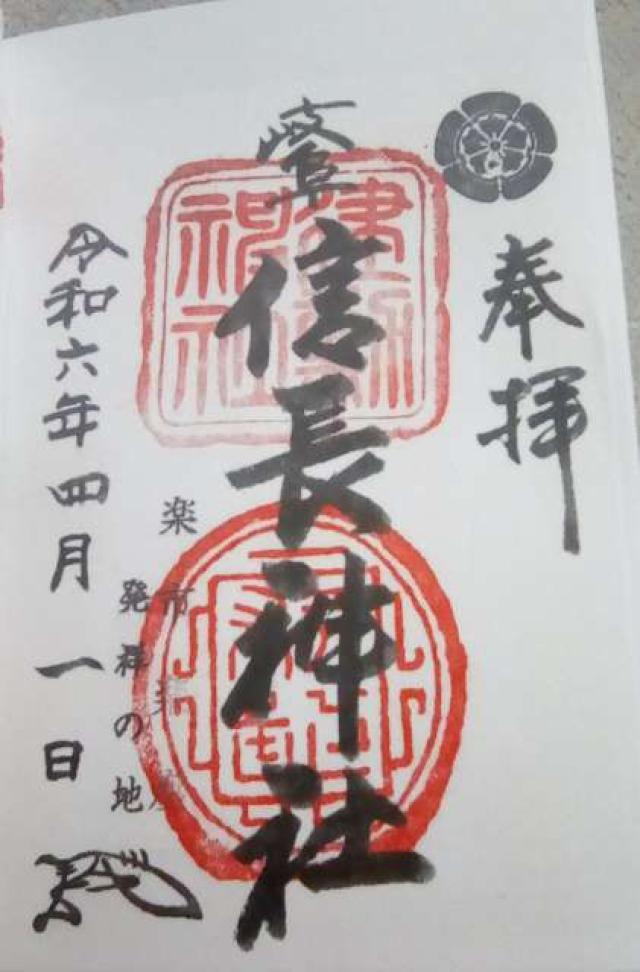 奉拝
信長神社
建勲神社
楽市楽座
発祥の地
令和六年四月一日